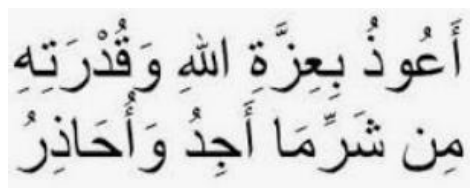 أَعُوذُ بِعِزَّةِ اللهِ وَقُدْرَتِهِ
مِن شَرِّمَا أَجِدُ وَأُحَاذِرُ